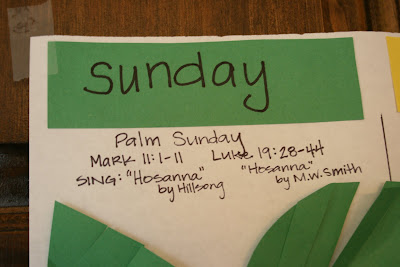 sunday
Palm Sunday
Mark 11:1-11 Luke 19:28-44
SING: "Hosanna" "Hosanna"
by Hillsong by M.W. Smith